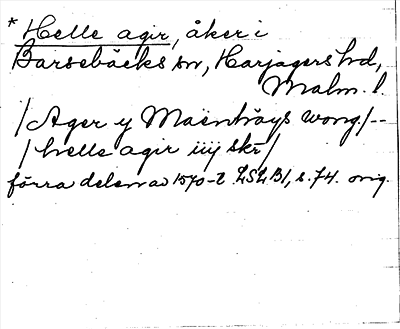 * Helle agir, åker i
Barsebäcks sn, Harjagers hd,
Malm. l.
/Ager y Maenhöys wong/--
/helle agir iiij skr/
förra delen av 1570-t. LSLB1, s. 74. orig.